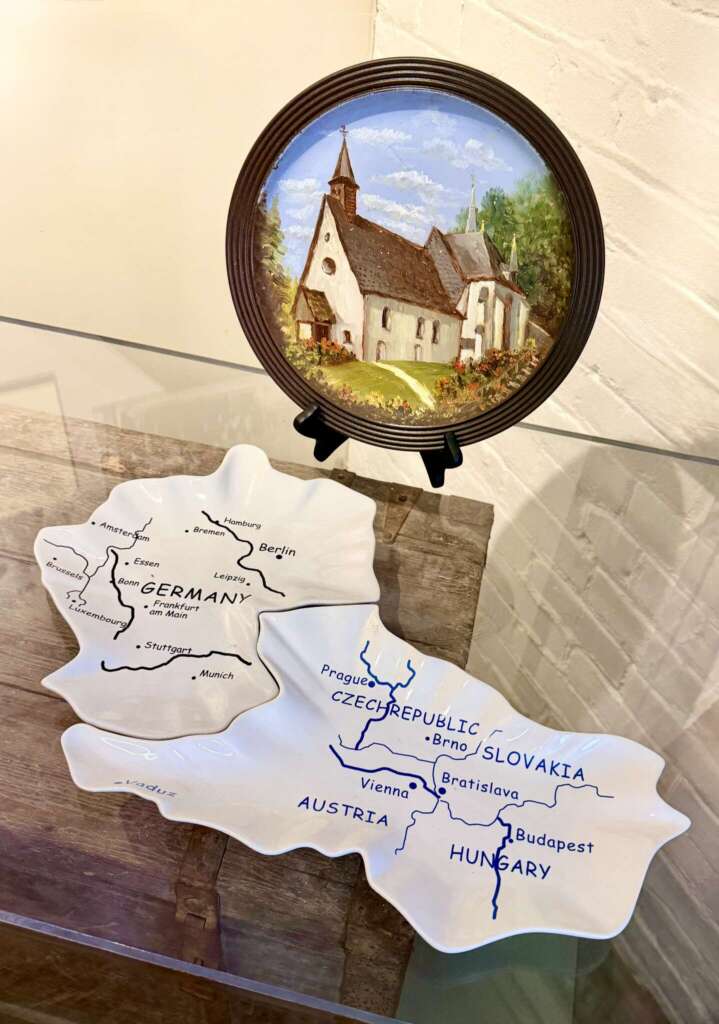 Hamburg
Bremen
Amsterdam
Berlin
Essen
Leipzig
Brussels
Bonn
GERMANY
Luxembourg
Frankfurt
am Main
Stuttgart
Munich
Prague
CZECHREPUBLIC
Brno
SLOVAKIA
Vaduz
Vienna
Bratislava
AUSTRIA
Budapest
HUNGARY